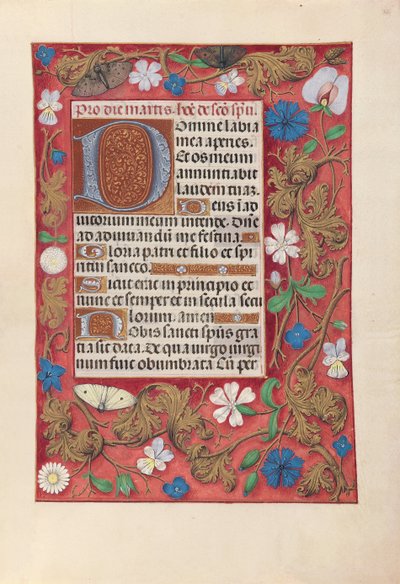 Pro die martis. hoē de scō spū.
Domine labia
mea aperies.
Et os meum
annunciabit
laudem tuaz.
Deus i ad
iutorium meum intende. Dne
ad adiuuandū me festina.
Gloria patri et filio et spi
ritui sancto.
Sicut erat in principio et
nunc et semper et in secula secu
lorum. amen.
Nobis sancti spūs gra
tia sit data. De qua virgo virgi
num fuit obumbrata. Cū per